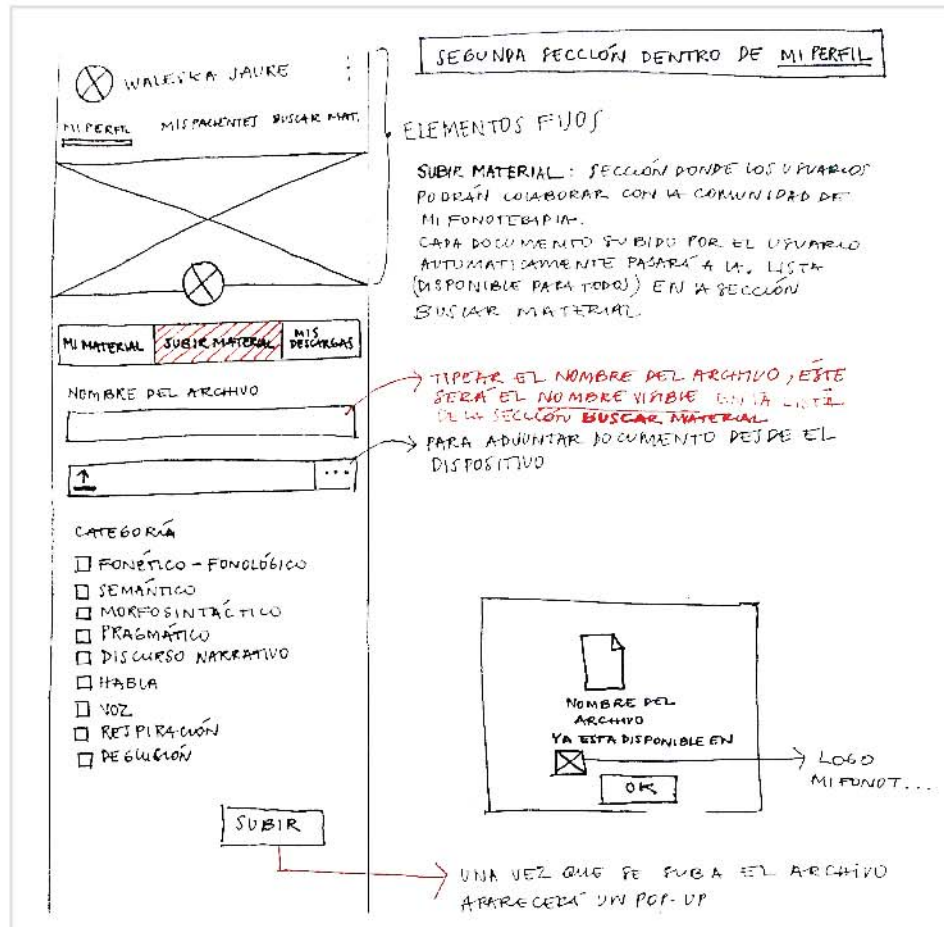 WALESKA JAURE
MI PERFIL MIS PACIENTES BUSCAR MAT.
MI MATERIAL SUBIR MATERIAL MIS DESCARGAS
NOMBRE DEL ARCHIVO
CATEGORÍA
FONÉTICO - FONOLÓGICO
SEMÁNTICO
MORFOSINTÁCTICO
PRAGMÁTICO
DISCURSO NARRATIVO
HABLA
VOZ
RESPIRACIÓN
DEGLUCIÓN
SUBIR
SEGUNDA SECCIÓN DENTRO DE MI PERFIL
ELEMENTOS FIJOS
SUBIR MATERIAL: SECCIÓN DONDE LOS USUARIOS
PODRÁN COLABORAR CON LA COMUNIDAD DE
MI FONOTERAPIA.
CADA DOCUMENTO SUBIDO POR EL USUARIO
AUTOMATICAMENTE PASARÁ A LA LISTA
(DISPONIBLE PARA TODOS) EN LA SECCIÓN
BUSCAR MATERIAL.
TIPEAR EL NOMBRE DEL ARCHIVO, ESTE
SERÁ EL NOMBRE VISIBLE EN LA LISTA
DE LA SECCIÓN BUSCAR MATERIAL
PARA ADJUNTAR DOCUMENTO DESDE EL
DISPOSITIVO
NOMBRE DEL
ARCHIVO
YA ESTA DISPONIBLE EN
OK
LOGO
MIFONOT...
UNA VEZ QUE SE SUBA EL ARCHIVO
APARECERÁ UN POP-UP